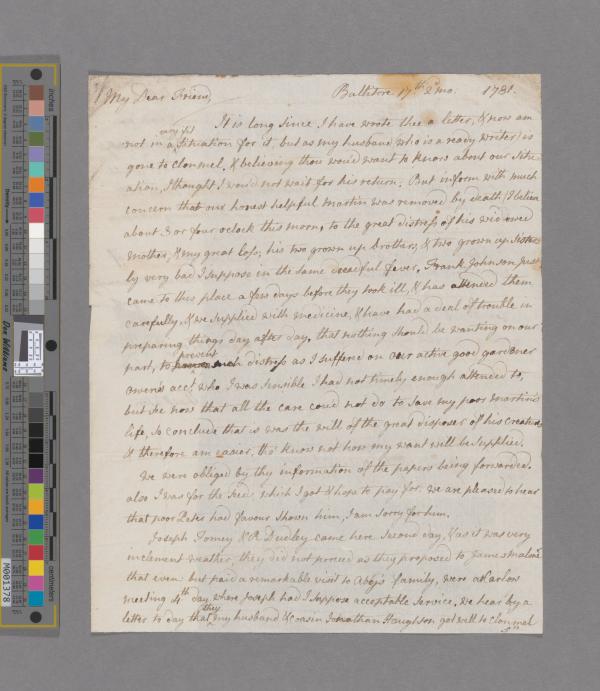 My Dear Friend, Balitore 17th 2mo. 1781.
It is long since I have wrote thee a letter, & now am
not in a very fit situation for it, but as my husband who is a ready writer is
gone to Clonmel, & believing thou would want to know about our situ-
ation, I thought I would not wait for his return. But inform with much
concern that our honest helpful Martin was removed by death, I believe
about 3 or four oclock this morng to the great distress of his widowed
mother, & my great loss, his two grown up brothers, & two grown up sisters
ly very bad I suppose in the same dreadful fever, Frank Johnson just
came to this place a few days before they took ill, & has attended them
carefully, & we supplied with medicine, & have had a deal of trouble in
preparing things day after day, that nothing should be wanting on our
part, to prevent such distress as I suffered on our active good gardener
Owen's acct. who I was sensible I had not timely enough attended to,
but see now that all the care could not do to save my poor Martin's
life, so conclude that is was the will of the great disposer of his creatures
& therefore am easier, tho' know not how my want will be supplied.
We were obliged by thy information of the papers being forwarded.
also I was for the seed, which I got & hope to pay for. we are pleased to hear
that poor Peter had favour shown him, I am sorry for him.
Joseph Tomey & R. Dudley came here second day, & as it was very
inclement weather, they did not proceed as they proposed to James Malone's
that even: but paid a remarkable visit to Aby's family, were at Carlow
meeting 4th day where Joseph had I suppose acceptable service. We hear by a
letter to day that they my husband & cousin Jonathan Haughton got well to Clonmel
inches
centimeters
Don Williams
M001378